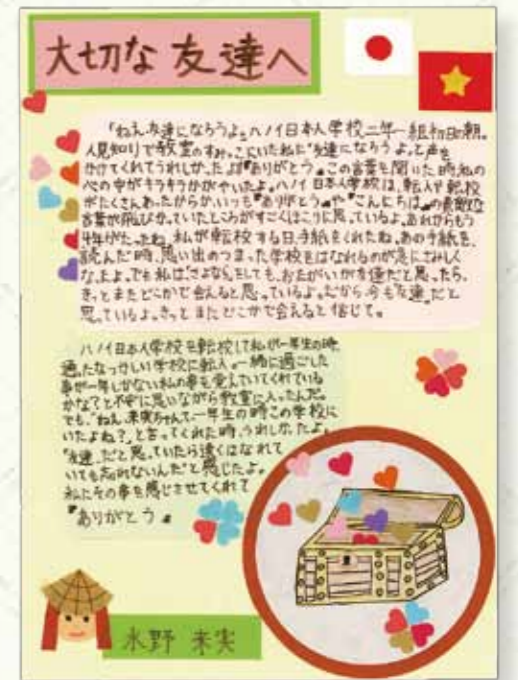 大切な 友達へ
「ねえ、友達になろうよ。」ハノイ日本人学校二年一組初日の朝。
人見知りで教室のすみっこにいた私に"友達になろうよ。"と声を
かけてくれてうれしかったよ。"ありがとう"この言葉を聞いた時、私の
心の中がキラキラかがやいたよ。ハノイ日本人学校は、転入や転校
がたくさんあったからか、いつも"ありがとう"や"こんにちは"の素敵な
言葉が飛びかっていたところがすごくほこりに思っているよ。あれからもう
4年がたったね。私が転校する日、手紙をくれたね。あの手紙を、
読んだ時、思い出のつまった学校をはなれるのが急にさみしく
なったよ。でも私は"さよなら"をしても、おたがいが友達だと思ったら、
きっとまたどこかで会えると思っているよ。だから今も友達だと
思っているよ。きっとまたどこかで会えると信じて。
ハノイ日本人学校を転校して私が一年生の時、
通ったなつかしい学校に転入。一緒に過ごした
事が一年しかない私の事を覚えていてくれている
かな?と不安に思いながら教室に入ったんだ。
でも、"ねえ、来実ちゃんて一年生の時この学校に
いたよね?"と言ってくれた時、うれしかったよ。
"友達"だと思っていたら遠くはなれて
いても忘れないんだと感じたよ。
私にその事を感じさせてくれて
"ありがとう"
水野 来実